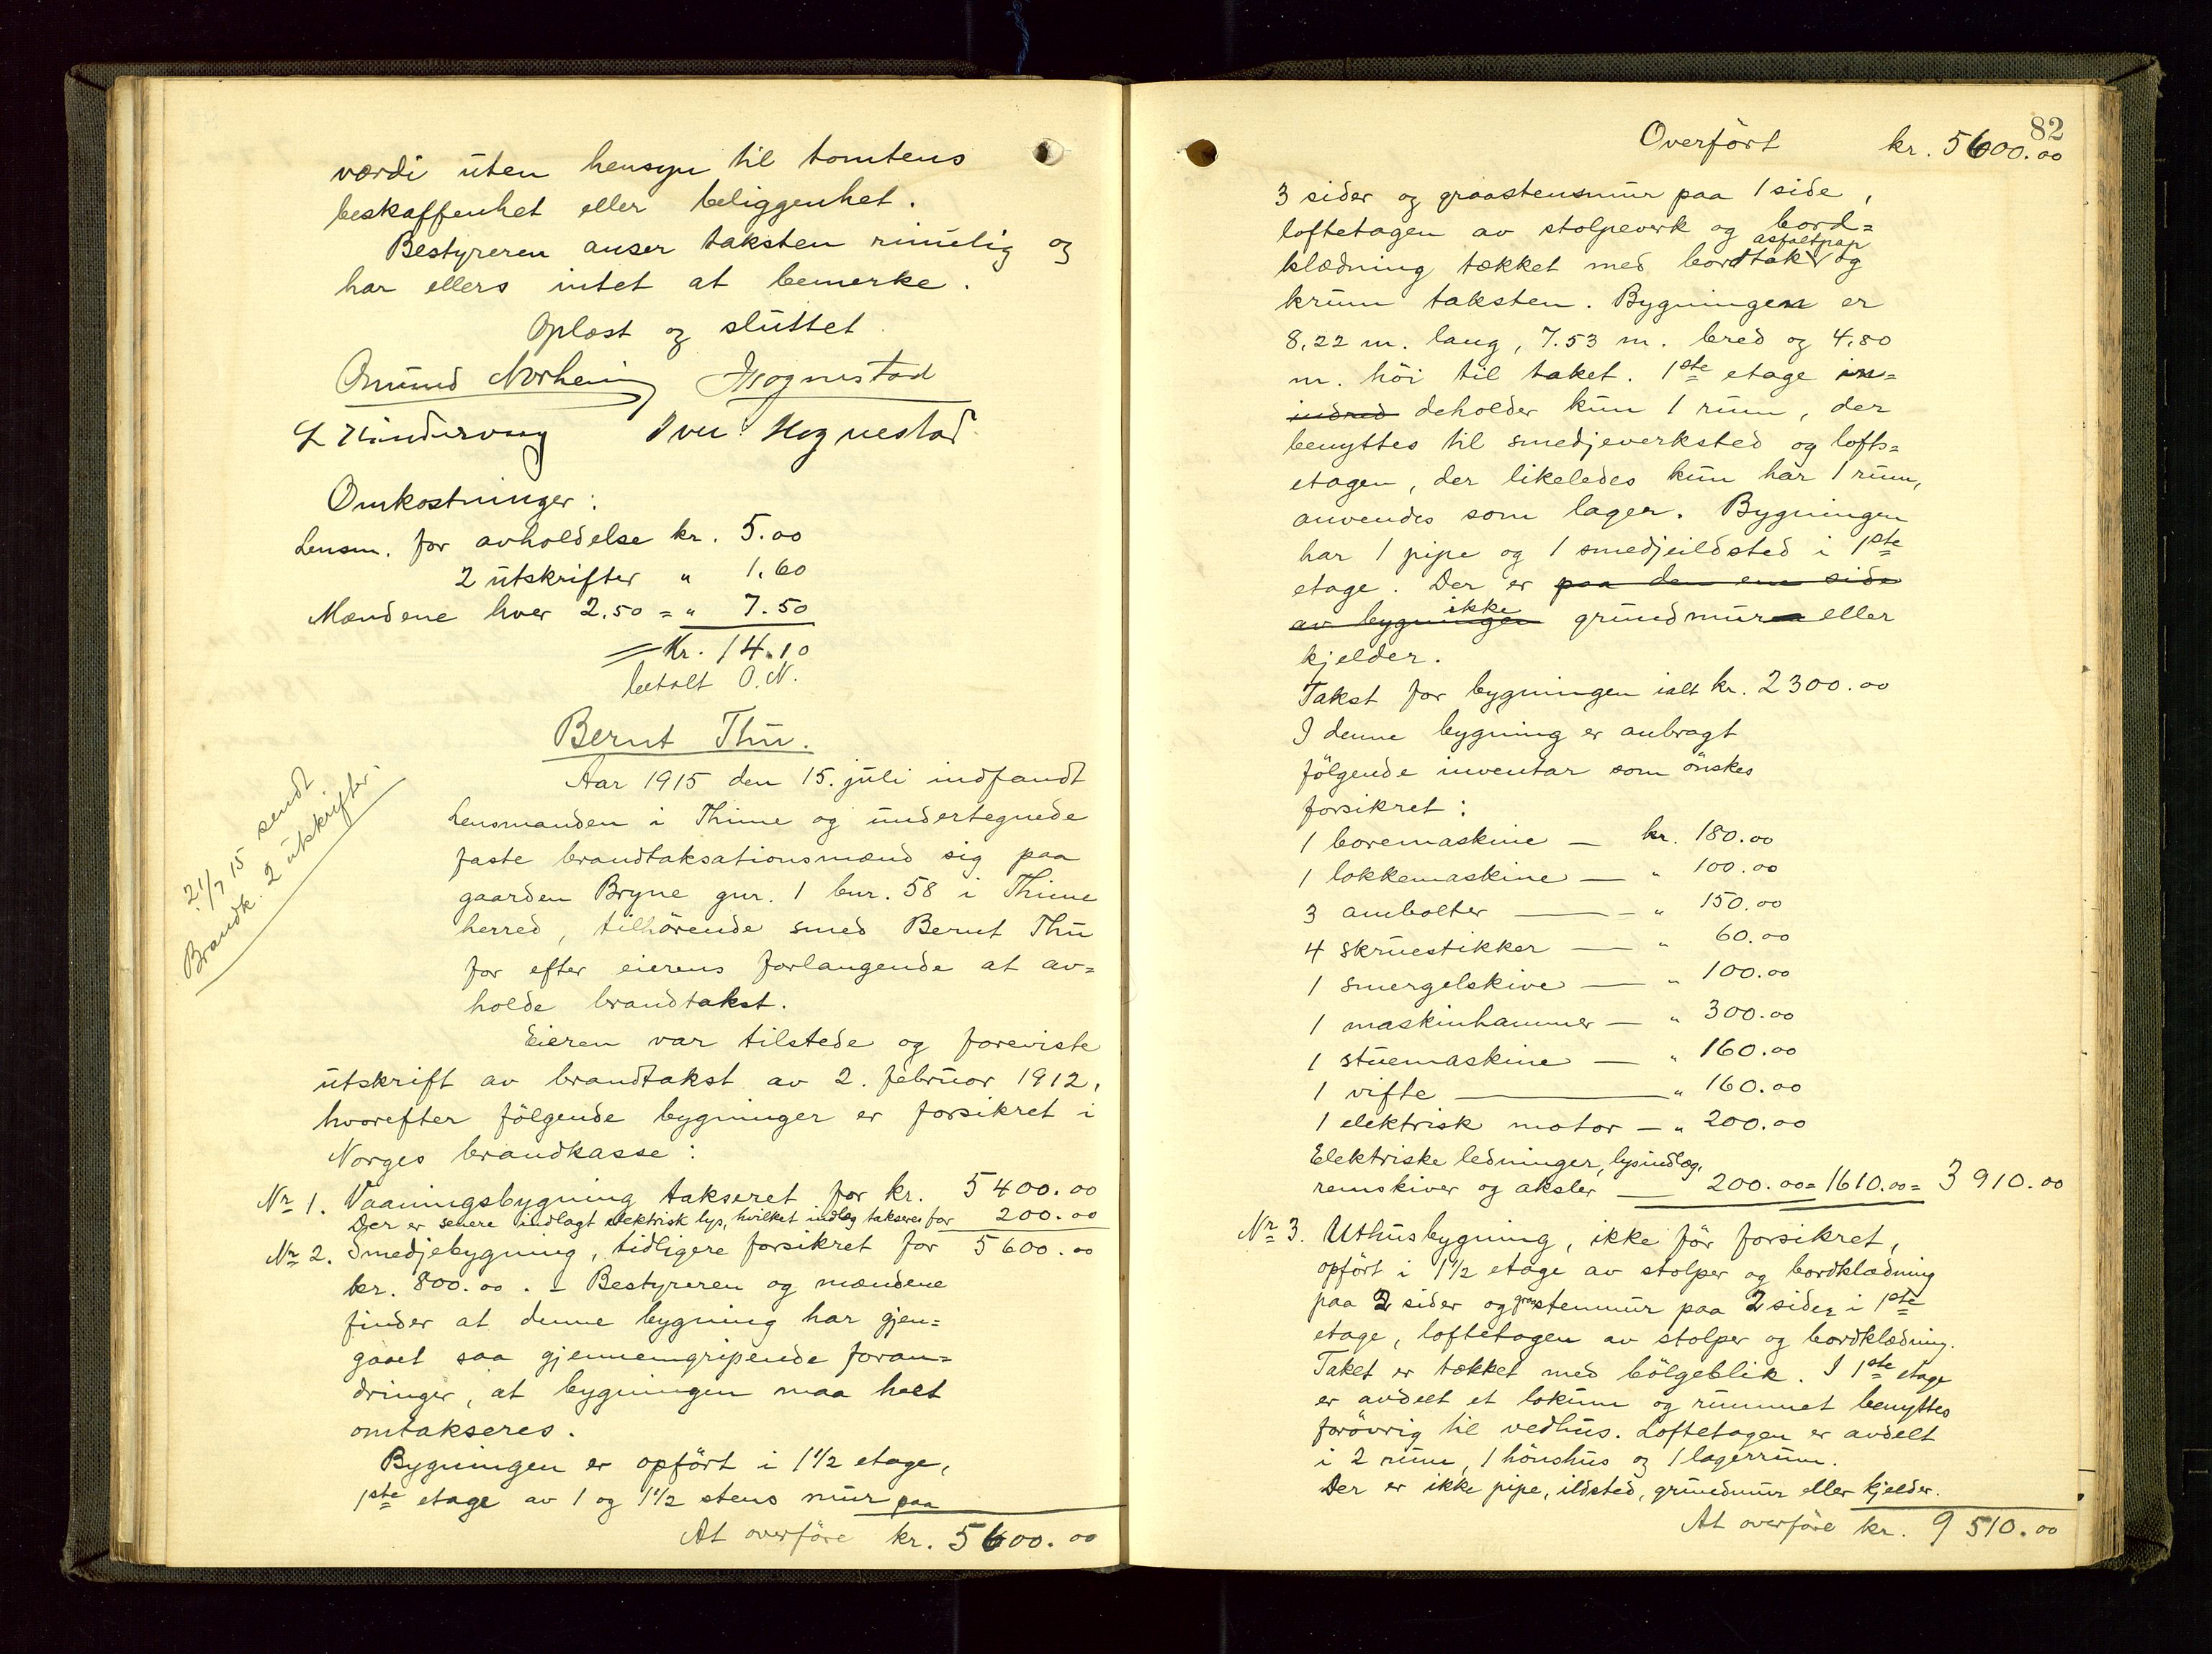 værdi uten hensyn til tomtens
beskaffenhet eller beliggenhet.
Bestyreren anser taksten rimelig og
har ellers intet at bemerke.
Oplæst og sluttet
Omund Norheim Hognestad
Iver Hognestad
Omkostninger:
Lensm. for avholdelse kr. 5.00
2 utskrifter " 1.60
Mændene hver 2.50 = " 7.50
= Kr. 14.10
betalt O.N.
Bernt Thu.
21/7 15 sendt
Brandk. 2 utskrifter.
Aar 1915 den 15. juli indfandt
Lensmanden i Thime og undertegnede
faste brandtaksationsmænd sig paa
gaarden Bryne gnr. 1 bnr. 58 i Thime
herred, tilhörende smed Bernt Thu
for efter eierens forlangende at av=
holde brandtakst.
Eieren var tilstede og foreviste
utskrift av brandtakst av 2. februar 1912,
hvorefter fölgende bygninger er forsikret i
Norges brandkasse:
Nr 1. Vaaningsbygning takseret for kr. 5400.00
Der er senere indlagt elektrisk lys, hvilket indlæg takseres for 200.00
Nr 2. Smedjebygning, tidligere forsikret for 5600.00
kr. 800.00. - Bestyreren og mændene
finder at denne bygning har gjen=
gaaet saa gjennemgripende foran=
dringer, at bygningen maa helt
omtakseres.
Bygningen er opfört i 1 1/2 etage,
1ste etage av 1 og 1 1/2 stens mur paa
At overföre kr. 5600.00
82
Overfört kr. 5600.00
3 sider og graastensmur paa 1 side,
loftetagen av stolpeverk og bord=
klædning tækket med bordtak asfaltpap og
krum taksten. Bygningen er
8,22 m. lang, 7.53 m. bred og 4,80
m. höi til taket. 1ste etage in=
indred deholder kun 1 rum, der
benyttes til smedjeverksted og lofts=
etagen, der likeledes kun har 1 rum,
anvendes som lager. Bygningen
har 1 pipe og 1 smedjeildsted i 1ste
etage. Der er paa den ene side
av bygningen ikke grundmur eller
kjelder.
Takst for bygningen ialt kr. 2300.00
I denne bygning er anbragt
fölgende inventar som önskes
forsikret:
1 boremaskine — kr. 180.00
1 lokkemaskine — " 100.00
3 ambolter — " 150.00
4 skruestikker — " 60.00
1 smergelskive — " 100.00
1 maskinhammer — " 300.00
1 stuemaskine — " 160.00
1 vifte — " 160.00
1 elektrisk motor — " 200.00
Elektriske ledninger, lysindlæg,
remskiver og aksler — 200.00 = 1610.00 = 3910.00
Nr 3. Uthusbygning, ikke för forsikret,
opfört i 1 1/2 etage av stolper og bordklædning
paa 2 sider og graastenmur paa 2 sider i 1ste
etage, loftetagen av stolper og bordklædning.
Taket er tækket med bölgeblik. I 1ste etage
er avdelt et lokum og rummet benyttes
forövrig til vedhus. Loftetagen er avdelt
i 2 rum, 1 hönshus og 1 lagerrum.
Der er ikke pipe, ildsted, grundmur eller kjelder.
At overföre kr. 9510.00